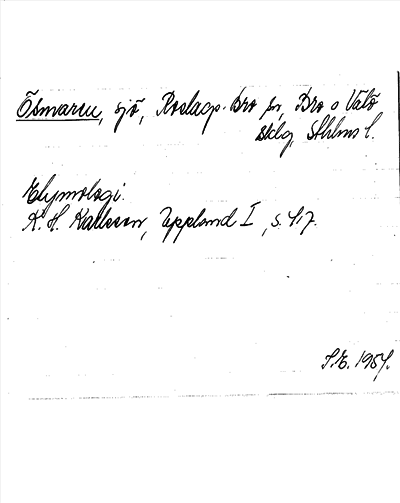 Ösmaren, sjö, Roslags-Bro sn, Bro o Vätö
skg, Sthlms l.
Etymologi.
K. H. Karlsson, Uppland I, s. 417.
S.E. 1957.